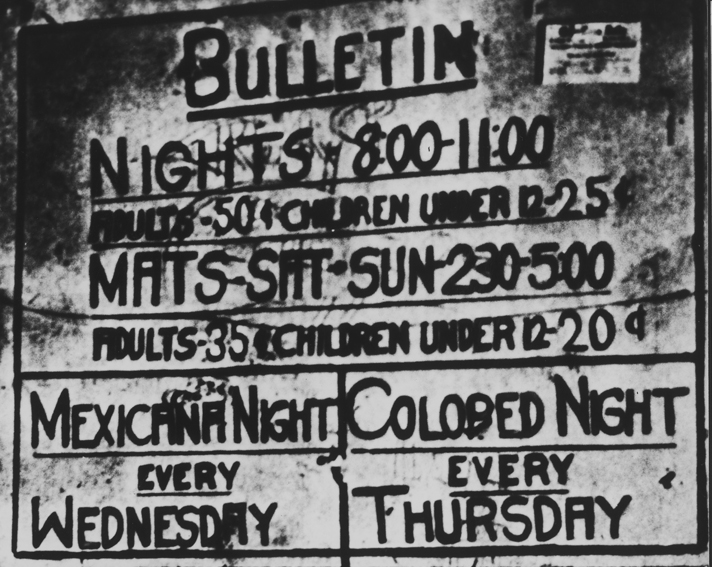 BULLETIN
NIGHTS 8:00-11:00
ADULTS-50¢ CHILDREN UNDER 12-25¢
MATS-SAT-SUN-2:30-5:00
ADULTS-35¢ CHILDREN UNDER 12-20¢
MEXICANA NIGHT
EVERY
WEDNESDAY
COLORED NIGHT
EVERY
THURSDAY